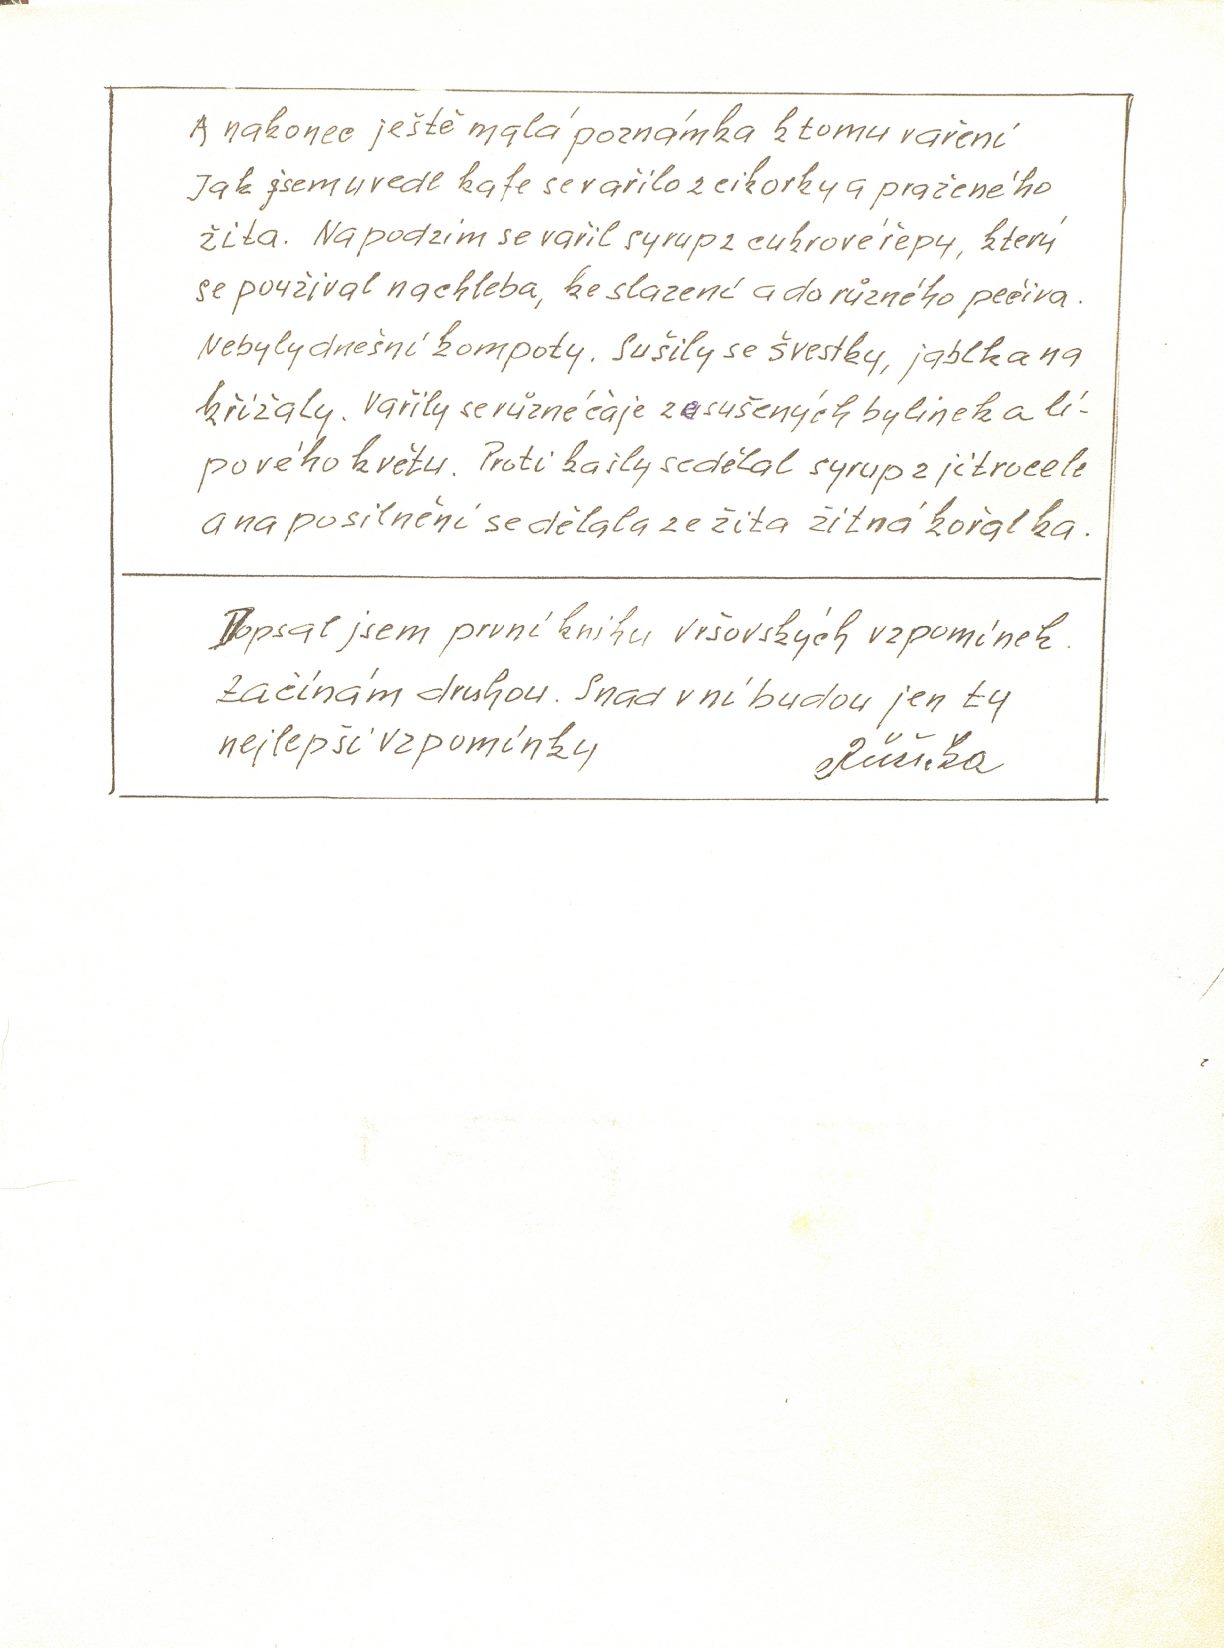 A nakonec ještě malá poznámka k tomu vaření
Jak jsem uvedl kafe se vařilo z cikorky a praženého
žita. Na podzim se vařil syrup z cukrové řepy, který
se používal na chleba, ke slazení a do různého pečiva.
Nebyly dnešní kompoty. Sušily se švestky, jablka na
křížaly. Vařily se různé čaje ze sušených bylinek a lí-
pového květu. Proti kašly se dělal syrup z jitrocele
a na posilnění se dělala ze žita žitná kořalka.
Dopsal jsem první knihu Vršovských vzpomínek.
Začínám druhou. Snad v ní budou jen ty
nejlepší vzpomínky
Růžička